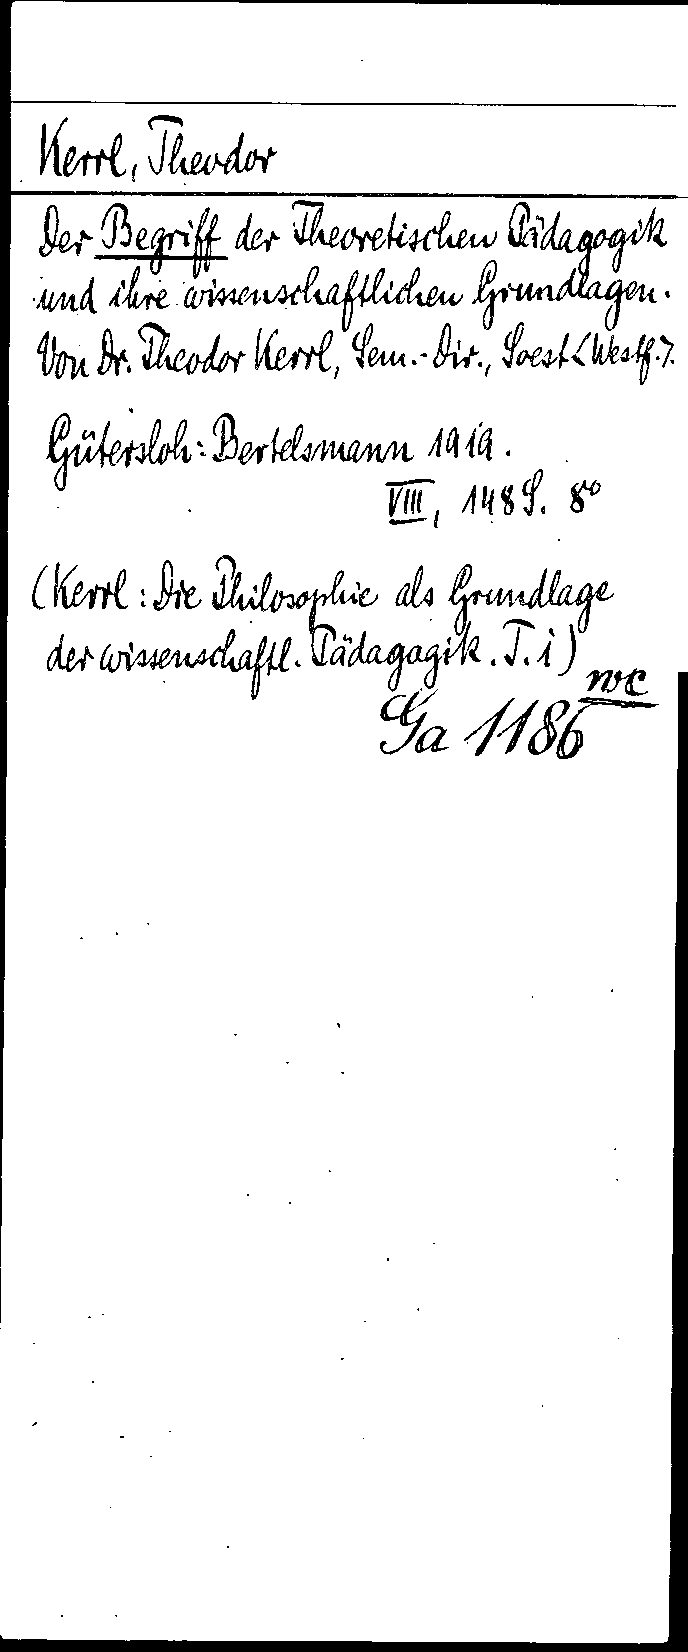 Kerrl, Theodor
Der Begriff der Theoretischen Pädagogik
und ihre wissenschaftlichen Grundlagen.
Von Dr. Theodor Kerrl, Sem.-Dir., Soest <Westf.>.
Gütersloh: Bertelsmann 1919.
VIII, 148 S. 8°
(Kerrl: Die Philosophie als Grundlage
der wissenschaftl. Pädagogik. T. 1)
Ga 1186